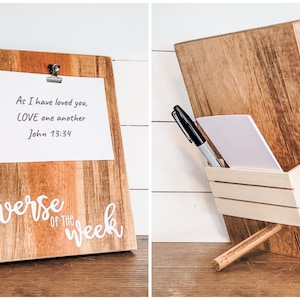 As I have loved you,
LOVE one another
John 13:34
verse
OF THE
week